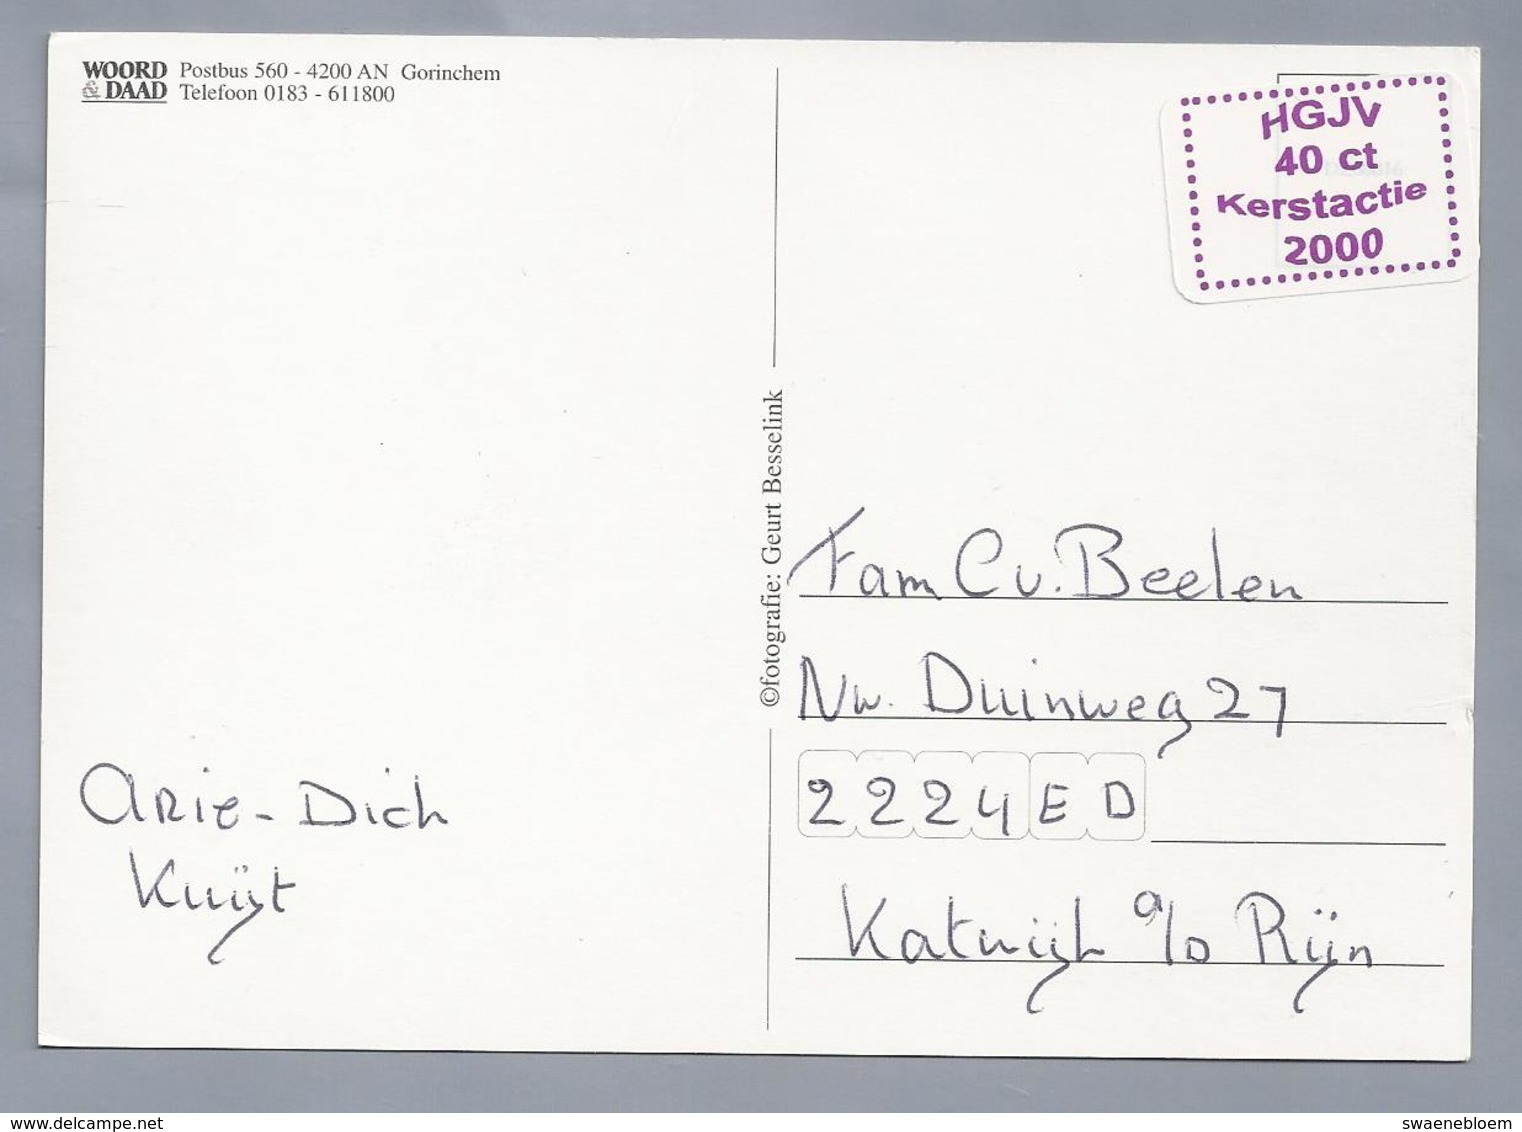 WOORD & DAAD
Postbus 560 - 4200 AN Gorinchem
Telefoon 0183 - 611800
HGJV
40 ct
Kerstactie
2000
©fotografie: Geurt Besselink
Fam C v. Beelen
Nw. Duinweg 27
2224 ED
Katwijk a/d Rijn
Arie-Dick
Kuijt
delcampe.net
swaenebloem